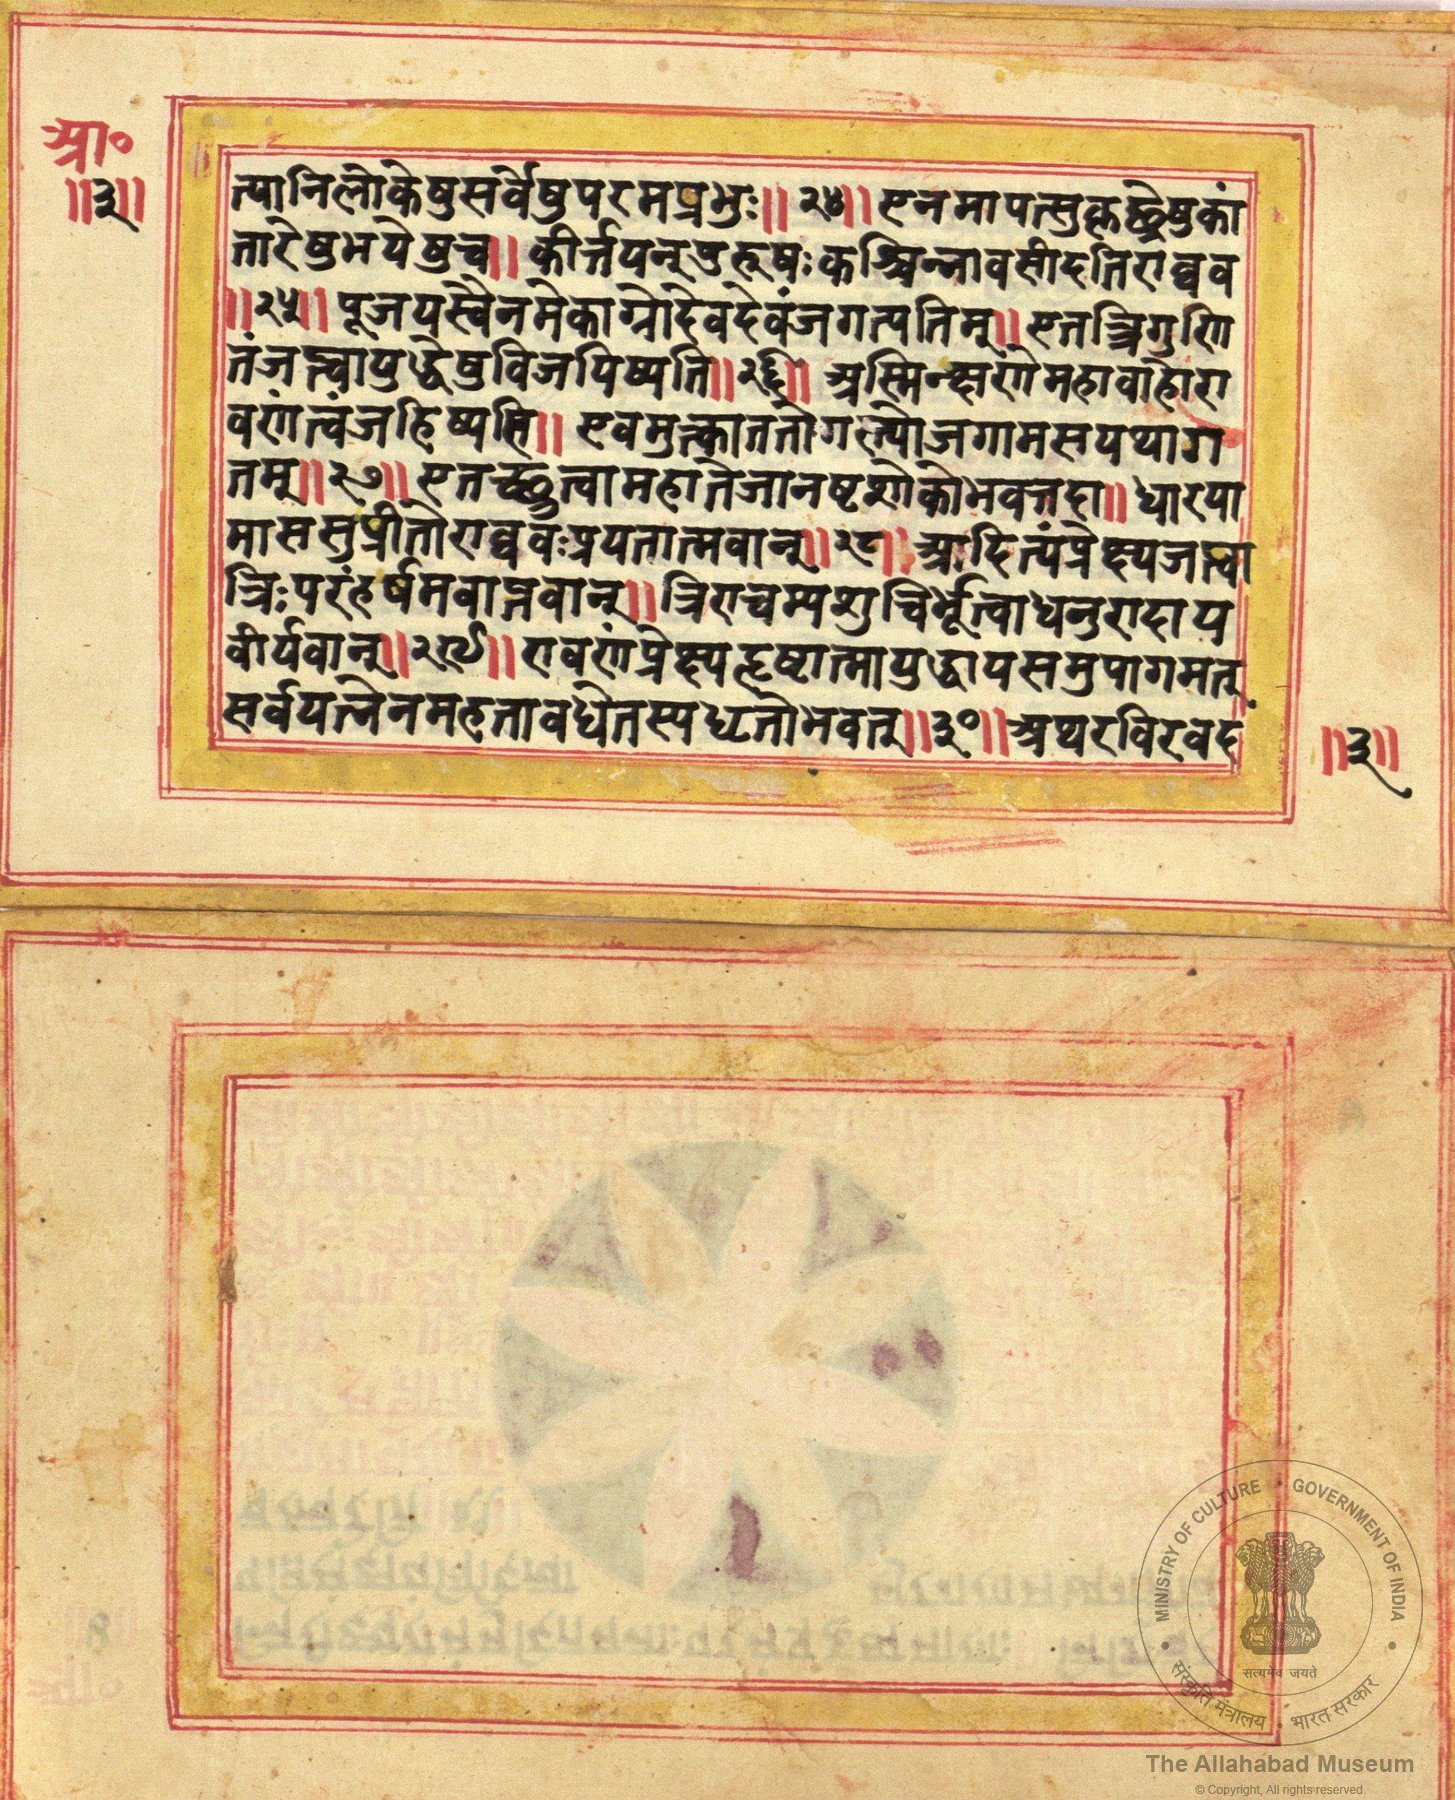 आ०
॥३॥
त्यानिलोकेषुसर्वेषुपरमप्रभुः॥२४॥एनमापत्सुकृच्छ्रेषुकां
तारेषुभयेषुच॥कीर्त्तयन्पुरूषःकश्चिन्नावसीदतिराघव
॥२५॥पूजयस्वैनमेकाग्रोदेवदेवंजगत्पतिम्॥एतत्त्रिगुणि
तंजप्त्वायुद्धेषुविजयिष्यति॥२६॥अस्मिन्क्षणेमहावाहोरा
वणंत्वंजहिष्यसि॥एवमुक्त्काततोगस्त्योजगामसयथाग
तम्॥२७॥एतच्छ्रुत्वामहातेजानष्टशोकोभवत्तदा॥धारया
माससुप्रीतोराघवःप्रयतात्मवान्॥२८॥आदित्यंप्रेक्ष्यजप्त्वा
त्रिःपरंहर्षमवाप्नवान्॥त्रिराचम्यशुचिर्भूत्वाधनुरादाय
वीर्यवान्॥२९॥रावणंप्रेक्ष्यहृष्टात्मायुद्धायसमुपागमत्
सर्वयत्नेनमहतावधेतस्यधृतोभवत्॥३०॥अथरविरवदं
॥३॥
MINISTRY OF CULTURE • GOVERNMENT OF INDIA
सत्यमेव जयते
संस्कृति मंत्रालय • भारत सरकार
The Allahabad Museum
© Copyright, All rights reserved.